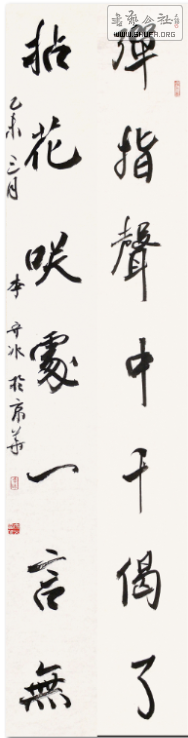 書藝公社
WWW.SHUFA.ORG
彈指聲中千偈了
拈花咲處一言無
乙未三月李冰於京華